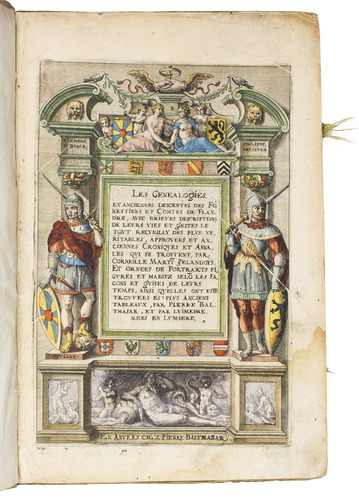 LES GENEALOGIES,
ET ANCIENNES DESCENTES DES FO
RESTIERS ET CONTES DE FLAN
DRE, AVEC BRIEVES DESCRIPTIONS
DE LEURS VIES ET GESTES LE
TOVT RECVEILLY DES PLVS VE
RITABLES, APPROVEES ET AN
CIENNES CRONIQVES ET ANNA
LES QVI SE TROVVENT, PAR
CORNEILLE MARTIN ZELANDOYS.
ET ORNEES DE PORTRAICTS FI
GVRES ET HABITZ SELŌ LES FA
CONS ET GVISES DE LEVRS
TEMPS, AINSI QVELLES ONT ESTE
TROVVEES ES PLVS ANCIENS
TABLEAVX, PAR PIERRE BAL
THASAR, ET PAR LVYMESME,
MISES EN LVMIERE.
EN ANVERS CHEZ PIERRE BALTHASAR